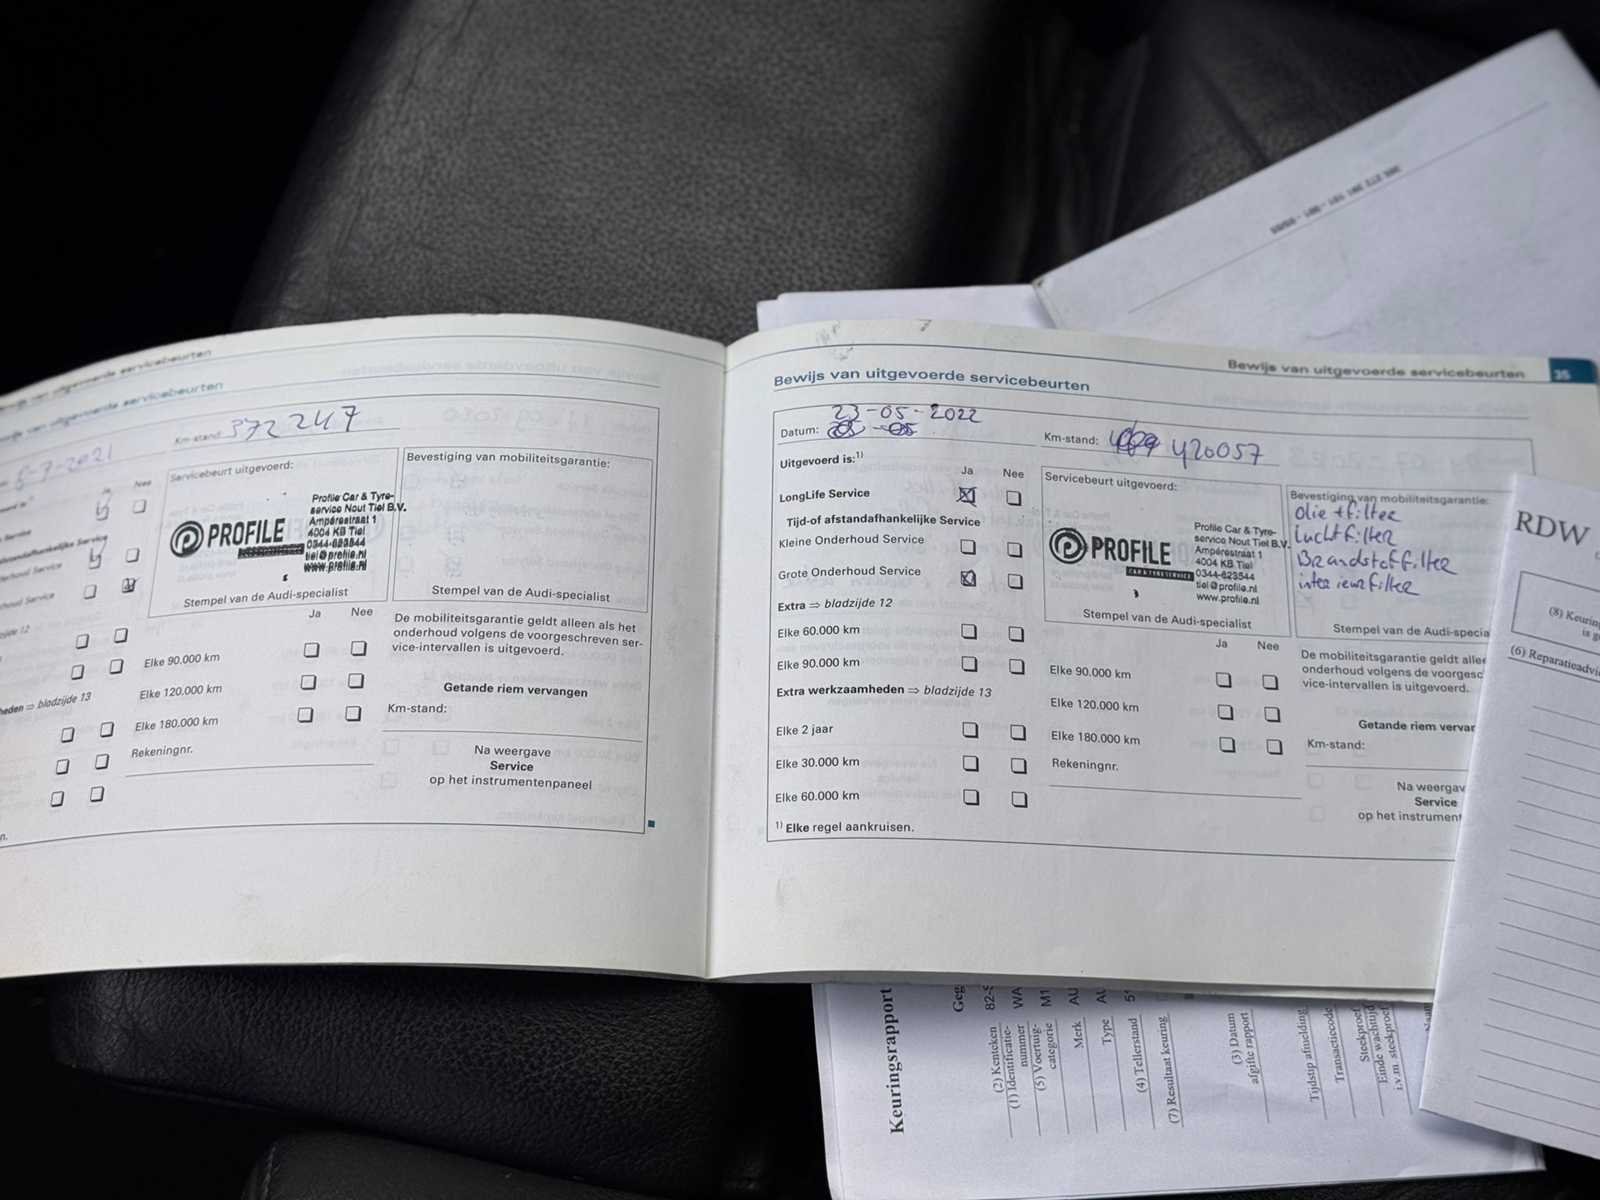 Bewijs van uitgevoerde servicebeurten
Bewijs van uitgevoerde servicebeurten
6-7-2021
Km-stand 372247
Ja
Nee
Servicebeurt uitgevoerd:
PROFILE
Profile Car & Tyre-
service Nout Tiel B.V.
Ampérestraat 1
4004 KB Tiel
0344-623544
tiel@profile.nl
www.profile.nl
Stempel van de Audi-specialist
Bevestiging van mobiliteitsgarantie:
Stempel van de Audi-specialist
Ja
Nee
Elke 90.000 km
Elke 120.000 km
Elke 180.000 km
Rekeningnr.
⇒ bladzijde 13
De mobiliteitsgarantie geldt alleen als het
onderhoud volgens de voorgeschreven ser-
vice-intervallen is uitgevoerd.
Getande riem vervangen
Km-stand:
Na weergave
Service
op het instrumentenpaneel
Bewijs van uitgevoerde servicebeurten 35
Bewijs van uitgevoerde servicebeurten
23-05-2022
Datum:
Km-stand: 420057
Uitgevoerd is:1)
Ja
Nee
LongLife Service
Tijd-of afstandafhankelijke Service
Kleine Onderhoud Service
Grote Onderhoud Service
Extra ⇒ bladzijde 12
Elke 60.000 km
Elke 90.000 km
Extra werkzaamheden ⇒ bladzijde 13
Elke 2 jaar
Elke 30.000 km
Elke 60.000 km
1) Elke regel aankruisen.
Servicebeurt uitgevoerd:
PROFILE
CAR & TYRESERVICE
Profile Car & Tyre-
service Nout Tiel B.V.
Ampérestraat 1
4004 KB Tiel
0344-623544
tiel@profile.nl
www.profile.nl
Stempel van de Audi-specialist
Ja
Nee
Elke 90.000 km
Elke 120.000 km
Elke 180.000 km
Rekeningnr.
Bevestiging van mobiliteitsgarantie:
Olie + filter
Luchtfilter
Brandstoffilter
interieurfilter
Stempel van de Audi-specia
De mobiliteitsgarantie geldt allee
onderhoud volgens de voorgesc
vice-intervallen is uitgevoerd.
Getande riem vervar
Km-stand:
Na weergav
Service
op het instrument
RDW
(8) Keuring
is g
(6) Reparatieadvi
Keuringsrapport
Geg
(2) Kenteken 82-S
(1) Identificatie- WA
nummer
(5) Voertuig- M1
categorie
Merk AU
Type AU
(4) Tellerstand 51
(7) Resultaat keuring
(3) Datum
afgifte rapport
Tijdstip afmelding
Transactiecode
Steekproef
Einde wachttijd
i.v.m. steekproef